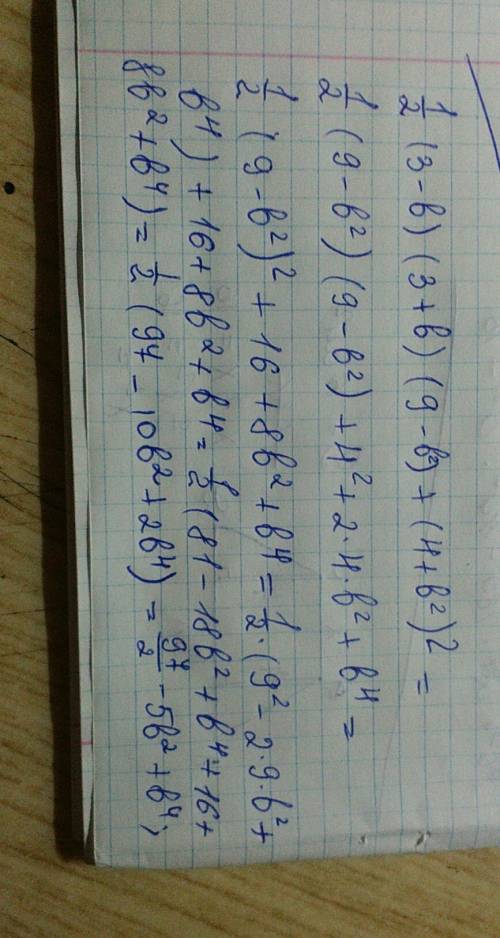 1/2 (3-b) (3+b) (9-b²) + (4+b²)² =
1/2 (9-b²) (9-b²) + 4² + 2·4·b² + b⁴ =
1/2 (9-b²)² + 16 + 8b² + b⁴ = 1/2 · (9² - 2·9·b² +
b⁴) + 16 + 8b² + b⁴ = 1/2 (81 - 18b² + b⁴ + 16 +
8b² + b⁴) = 1/2 (97 - 10b² + 2b⁴) = 97/2 - 5b² + b⁴;